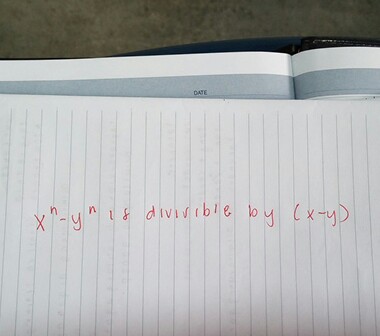 DATE
xⁿ-yⁿ is divisible by (x-y)